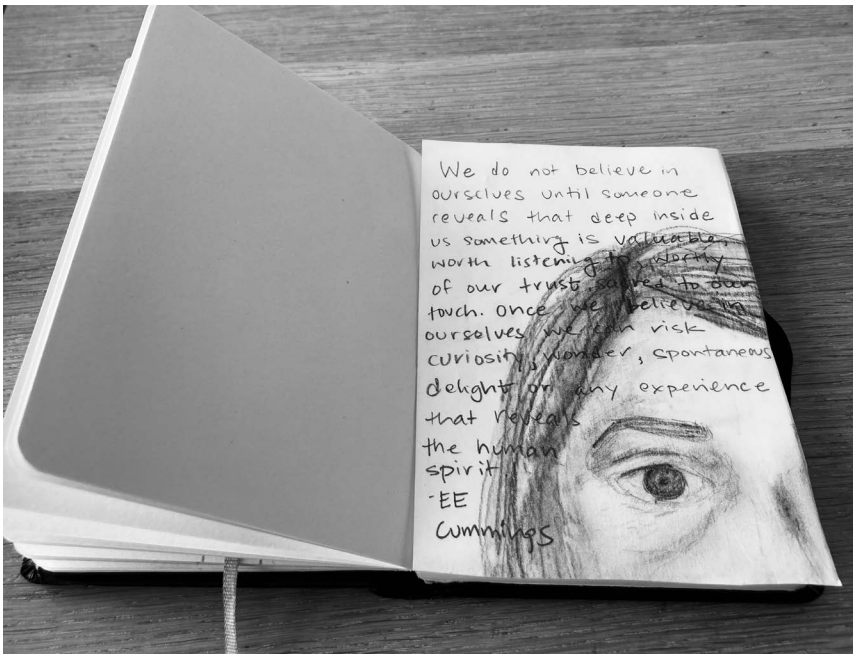 We do not believe in
ourselves until someone
reveals that deep inside
us something is valuable,
worth listening to, worthy
of our trust, sacred to our
touch. Once we believe in
ourselves we can risk
curiosity, wonder, spontaneous
delight or any experience
that reveals
the human
spirit.
-EE
Cummings